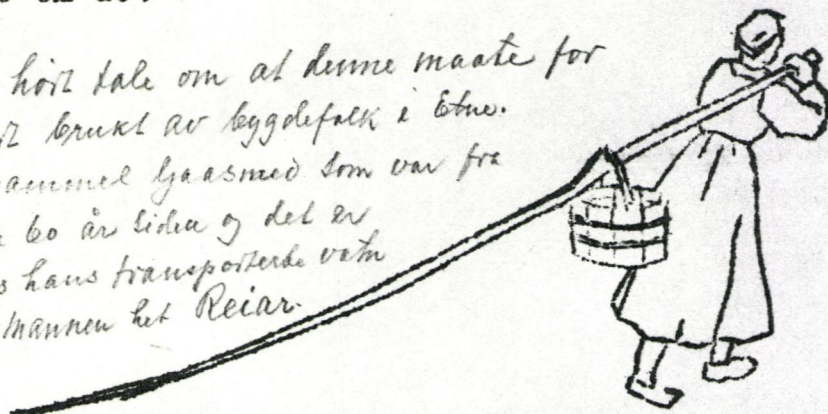 hört tale om at denne maate for
brukt av bygdefolk i Etne.
gammel ljaasmed som var fra
60 år siden og det er
hans transporterte vatn
mannen het Reiar.